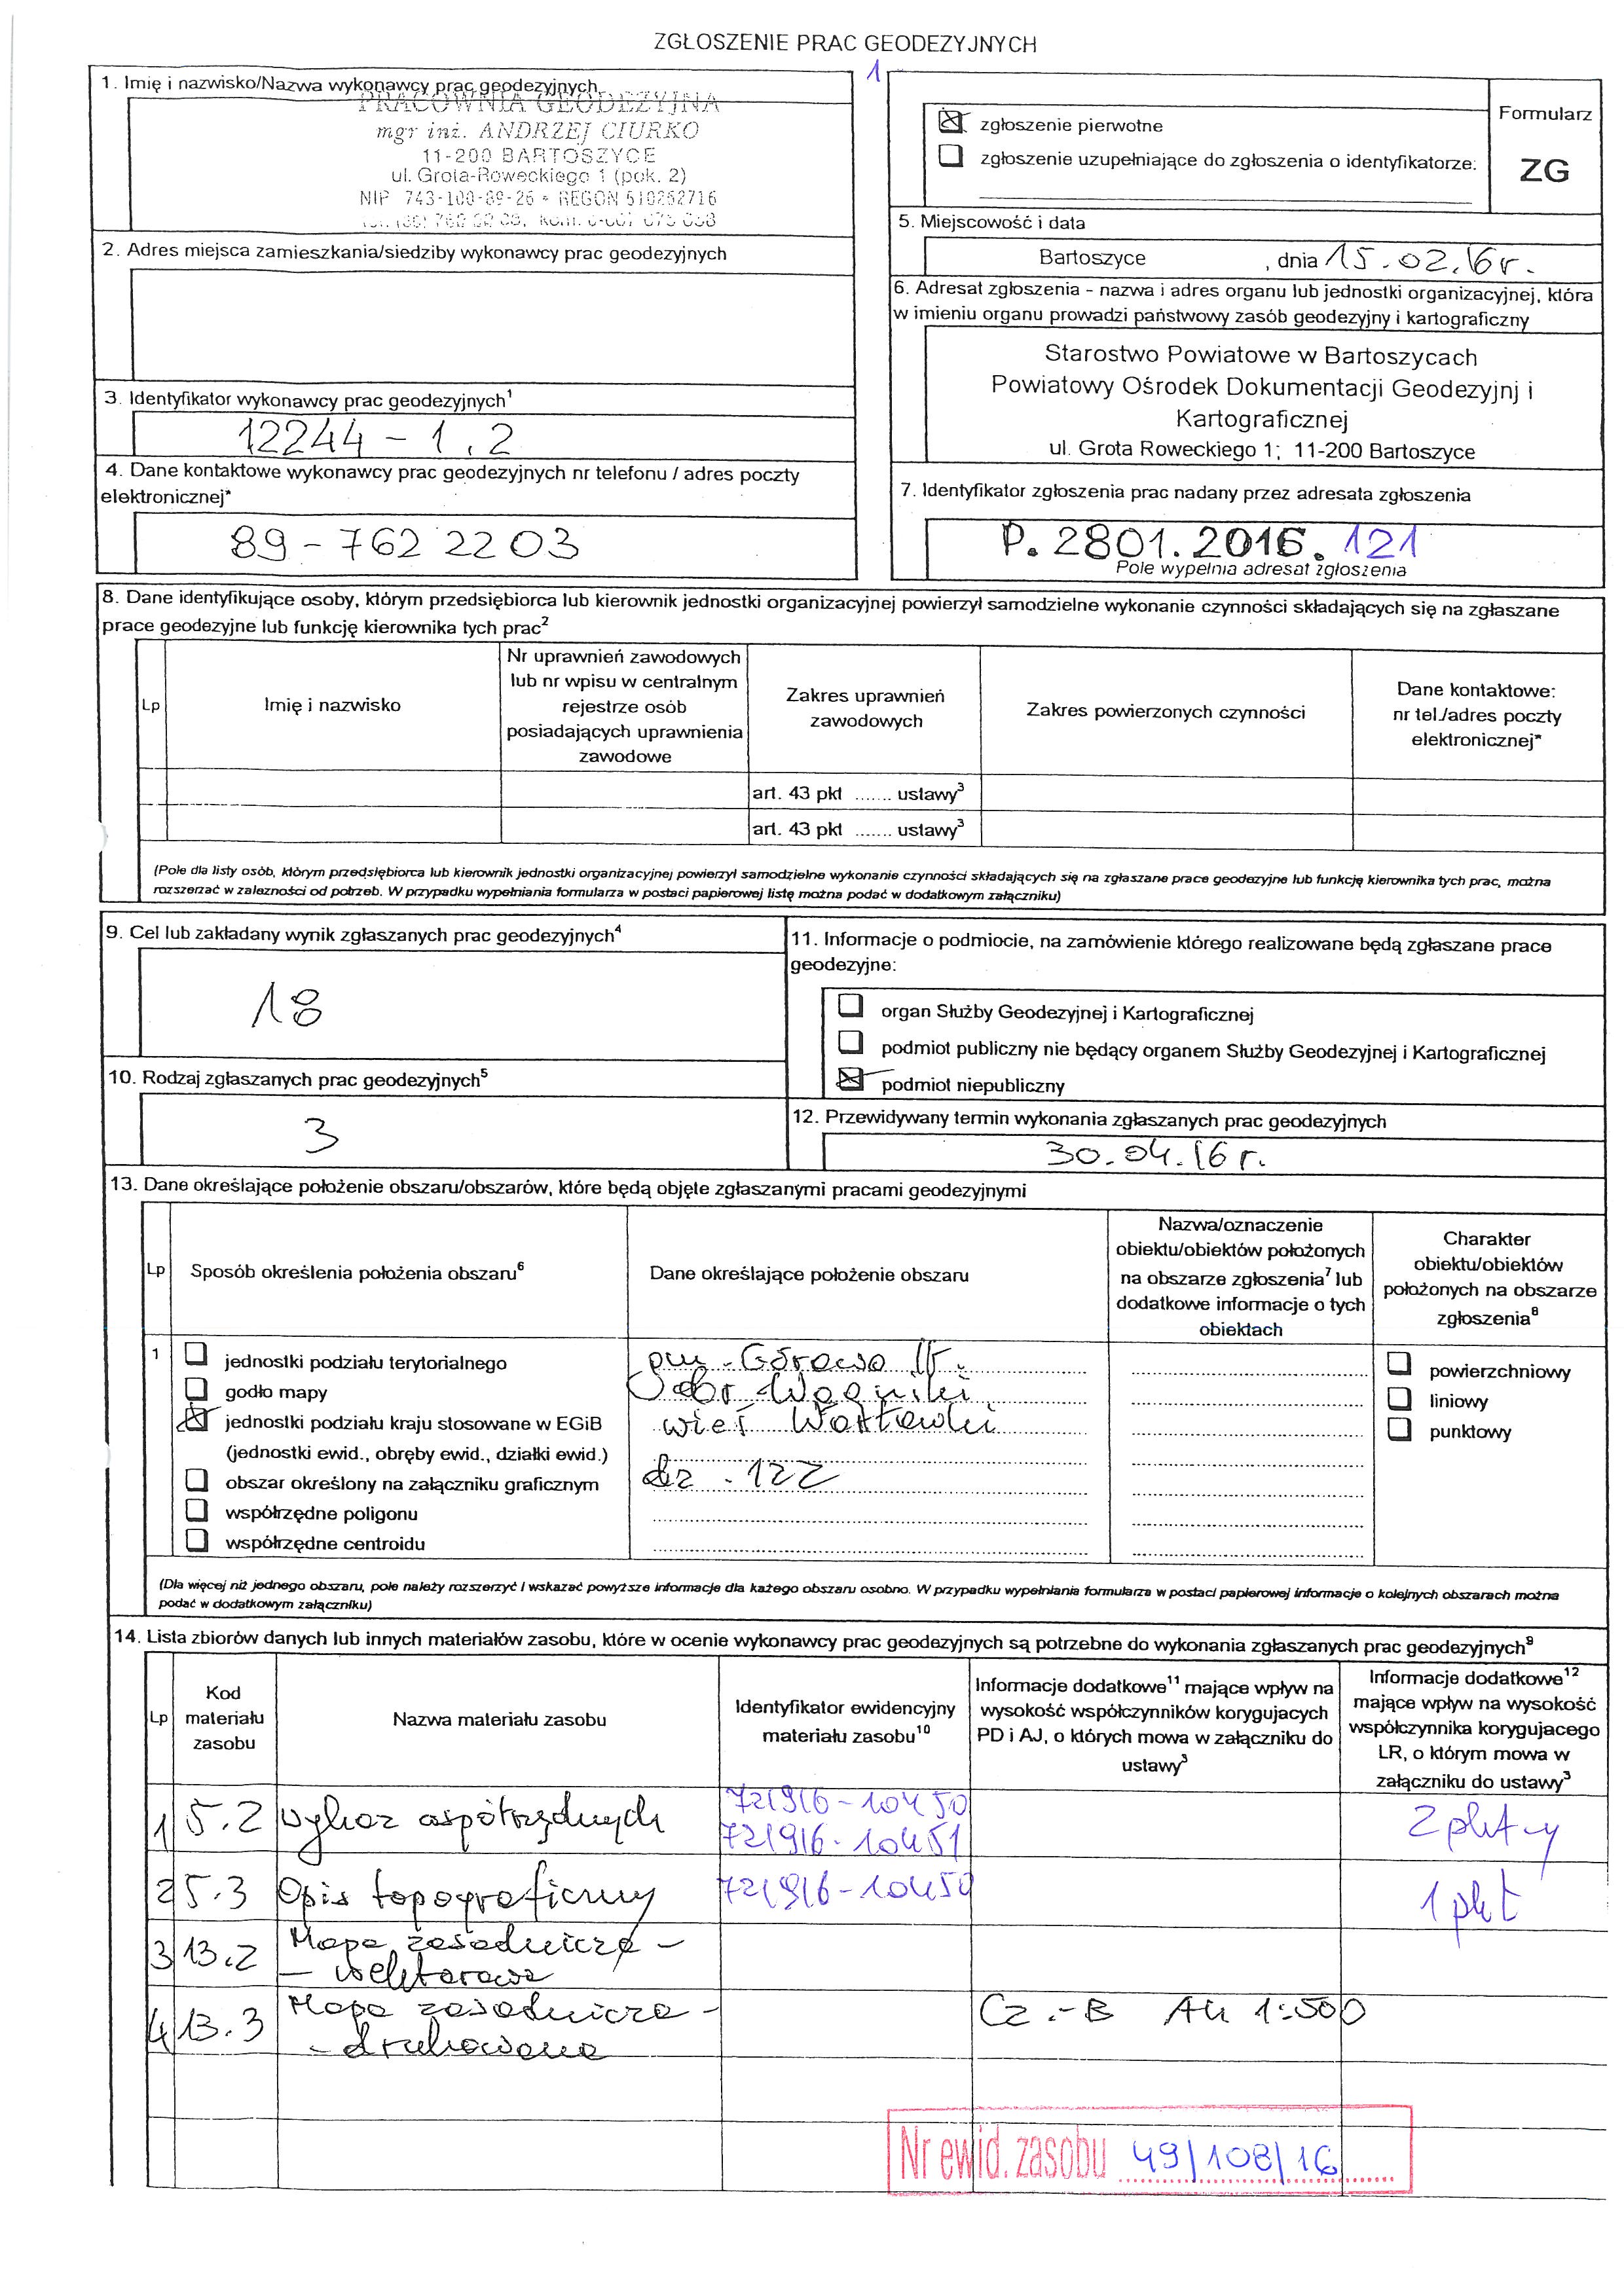 ZGŁOSZENIE PRAC GEODEZYJNYCH
1
1. Imię i nazwisko/Nazwa wykonawcy prac geodezyjnych
PRACOWNIA GEODEZYJNA
mgr inż. ANDRZEJ CIURKO
11-200 BARTOSZYCE
ul. Grota-Roweckiego 1 (pok. 2)
NIP 743-100-89-26 * REGON 510252716
2. Adres miejsca zamieszkania/siedziby wykonawcy prac geodezyjnych
3. Identyfikator wykonawcy prac geodezyjnych¹
12244 - 1, 2
4. Dane kontaktowe wykonawcy prac geodezyjnych nr telefonu / adres poczty
elektronicznej*
89 - 762 22 03
zgłoszenie pierwotne
zgłoszenie uzupełniające do zgłoszenia o identyfikatorze:
Formularz
ZG
5. Miejscowość i data
Bartoszyce , dnia 15.02.16 r.
6. Adresat zgłoszenia - nazwa i adres organu lub jednostki organizacyjnej, która
w imieniu organu prowadzi państwowy zasób geodezyjny i kartograficzny
Starostwo Powiatowe w Bartoszycach
Powiatowy Ośrodek Dokumentacji Geodezyjnj i
Kartograficznej
ul. Grota Roweckiego 1; 11-200 Bartoszyce
7. Identyfikator zgłoszenia prac nadany przez adresata zgłoszenia
P. 2801. 2016. 121
Pole wypełnia adresat zgłoszenia
8. Dane identyfikujące osoby, którym przedsiębiorca lub kierownik jednostki organizacyjnej powierzył samodzielne wykonanie czynności składających się na zgłaszane
prace geodezyjne lub funkcję kierownika tych prac²
Lp
Imię i nazwisko
Nr uprawnień zawodowych
lub nr wpisu w centralnym
rejestrze osób
posiadających uprawnienia
zawodowe
Zakres uprawnień
zawodowych
Zakres powierzonych czynności
Dane kontaktowe:
nr tel./adres poczty
elektronicznej*
art. 43 pkt ....... ustawy³
art. 43 pkt ....... ustawy³
(Pole dla listy osób, którym przedsiębiorca lub kierownik jednostki organizacyjnej powierzył samodzielne wykonanie czynności składających się na zgłaszane prace geodezyjne lub funkcję kierownika tych prac, można
rozszerzać w zależności od potrzeb. W przypadku wypełniania formularza w postaci papierowej listę można podać w dodatkowym załączniku)
9. Cel lub zakładany wynik zgłaszanych prac geodezyjnych⁴
18
10. Rodzaj zgłaszanych prac geodezyjnych⁵
3
11. Informacje o podmiocie, na zamówienie którego realizowane będą zgłaszane prace
geodezyjne:
organ Służby Geodezyjnej i Kartograficznej
podmiot publiczny nie będący organem Służby Geodezyjnej i Kartograficznej
podmiot niepubliczny
12. Przewidywany termin wykonania zgłaszanych prac geodezyjnych
30.04.16 r.
13. Dane określające położenie obszaru/obszarów, które będą objęte zgłaszanymi pracami geodezyjnymi
Lp
Sposób określenia położenia obszaru⁶
Dane określające położenie obszaru
Nazwa/oznaczenie
obiektu/obiektów położonych
na obszarze zgłoszenia⁷ lub
dodatkowe informacje o tych
obiektach
Charakter
obiektu/obiektów
położonych na obszarze
zgłoszenia⁸
1
jednostki podziału terytorialnego
godło mapy
jednostki podziału kraju stosowane w EGiB
(jednostki ewid., obręby ewid., działki ewid.)
obszar określony na załączniku graficznym
współrzędne poligonu
współrzędne centroidu
gm. Górowo Ił.
Obr
wieś
dz. 122
powierzchniowy
liniowy
punktowy
(Dla więcej niż jednego obszaru, pole należy rozszerzyć i wskazać powyższe informacje dla każdego obszaru osobno. W przypadku wypełniania formularza w postaci papierowej informacje o kolejnych obszarach można
podać w dodatkowym załączniku)
14. Lista zbiorów danych lub innych materiałów zasobu, które w ocenie wykonawcy prac geodezyjnych są potrzebne do wykonania zgłaszanych prac geodezyjnych⁹
Lp
Kod
materiału
zasobu
Nazwa materiału zasobu
Identyfikator ewidencyjny
materiału zasobu¹⁰
Informacje dodatkowe¹¹ mające wpływ na
wysokość współczynników korygujacych
PD i AJ, o których mowa w załączniku do
ustawy³
Informacje dodatkowe¹²
mające wpływ na wysokość
współczynnika korygujacego
LR, o którym mowa w
załączniku do ustawy³
1 5.2 Wykaz współrzędnych 721916-10450 2 pkt-y
721916-10451
2 5.3 Opis topograficzny 721916-10450 1 pkt
3 13.2 Mapa zasadnicza -
- wektorowa
4 13.3 Mapa zasadnicza - Cz.-B A4 1:500
- drukowana
Nr ewid. zasobu 49/108/16